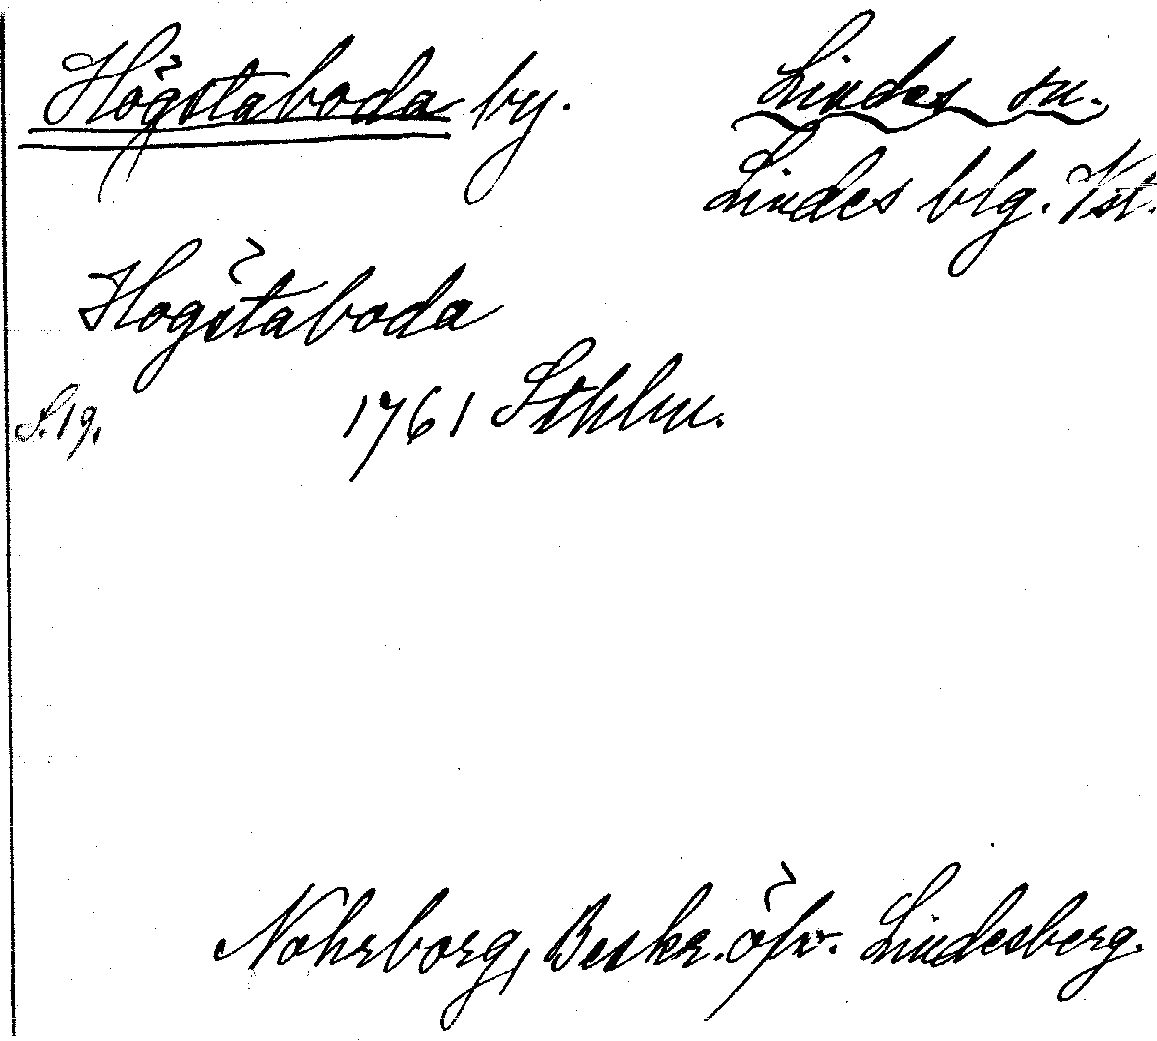 Högstaboda by. Lindes sn.
Lindes blg. Vst.
Högstaboda
S. 19. 1761 Sthlm.
Nohrborg, Beskr. öfv. Lindesberg.